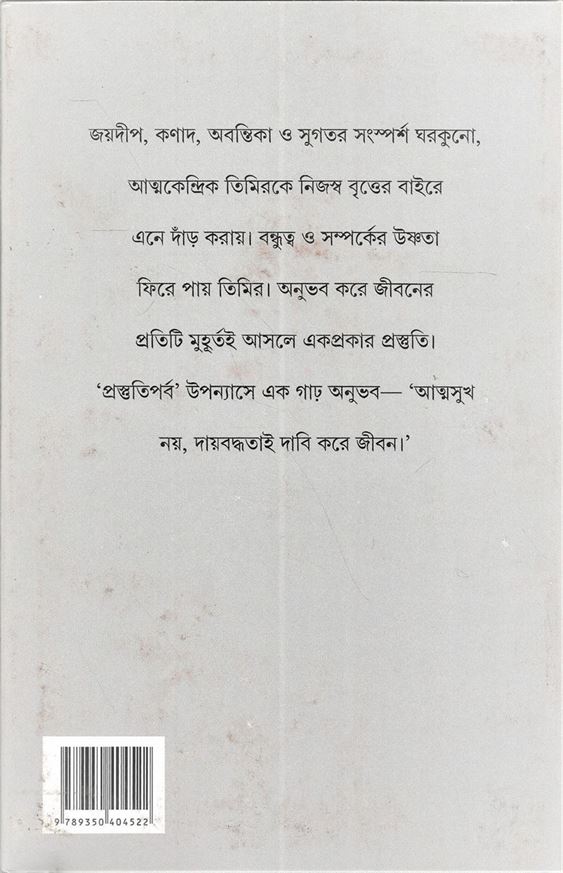 জয়দীপ, কণাদ, অবন্তিকা ও সুগতর সংস্পর্শ ঘরকুনো,
আত্মকেন্দ্রিক তিমিরকে নিজস্ব বৃত্তের বাইরে
এনে দাঁড় করায়। বন্ধুত্ব ও সম্পর্কের উষ্ণতা
ফিরে পায় তিমির। অনুভব করে জীবনের
প্রতিটি মুহূর্তই আসলে একপ্রকার প্রস্তুতি।
‘প্রস্তুতিপর্ব’ উপন্যাসে এক গাঢ় অনুভব— ‘আত্মসুখ
নয়, দায়বদ্ধতাই দাবি করে জীবন।’
9 789350 404522